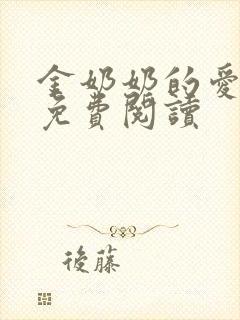 金奶奶的愛
免費閱讀
後藤